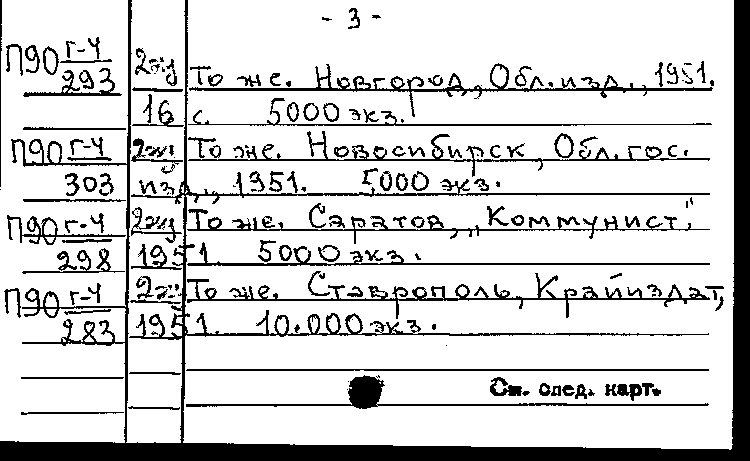 - 3 -
П90 Г-4 2эк То же. Новгород, Обл.изд., 1951.
293
16 с. 5000 экз.
П90 Г-4 То же. Новосибирск, Обл.гос.
303 изд., 1951. 5000 экз.
П90 Г-4 То же. Саратов, „Коммунист",
298 1951. 5000 экз.
П90 Г-4 То же. Ставрополь, Крайиздат,
283 1951. 10.000 экз.
См. след. карт.